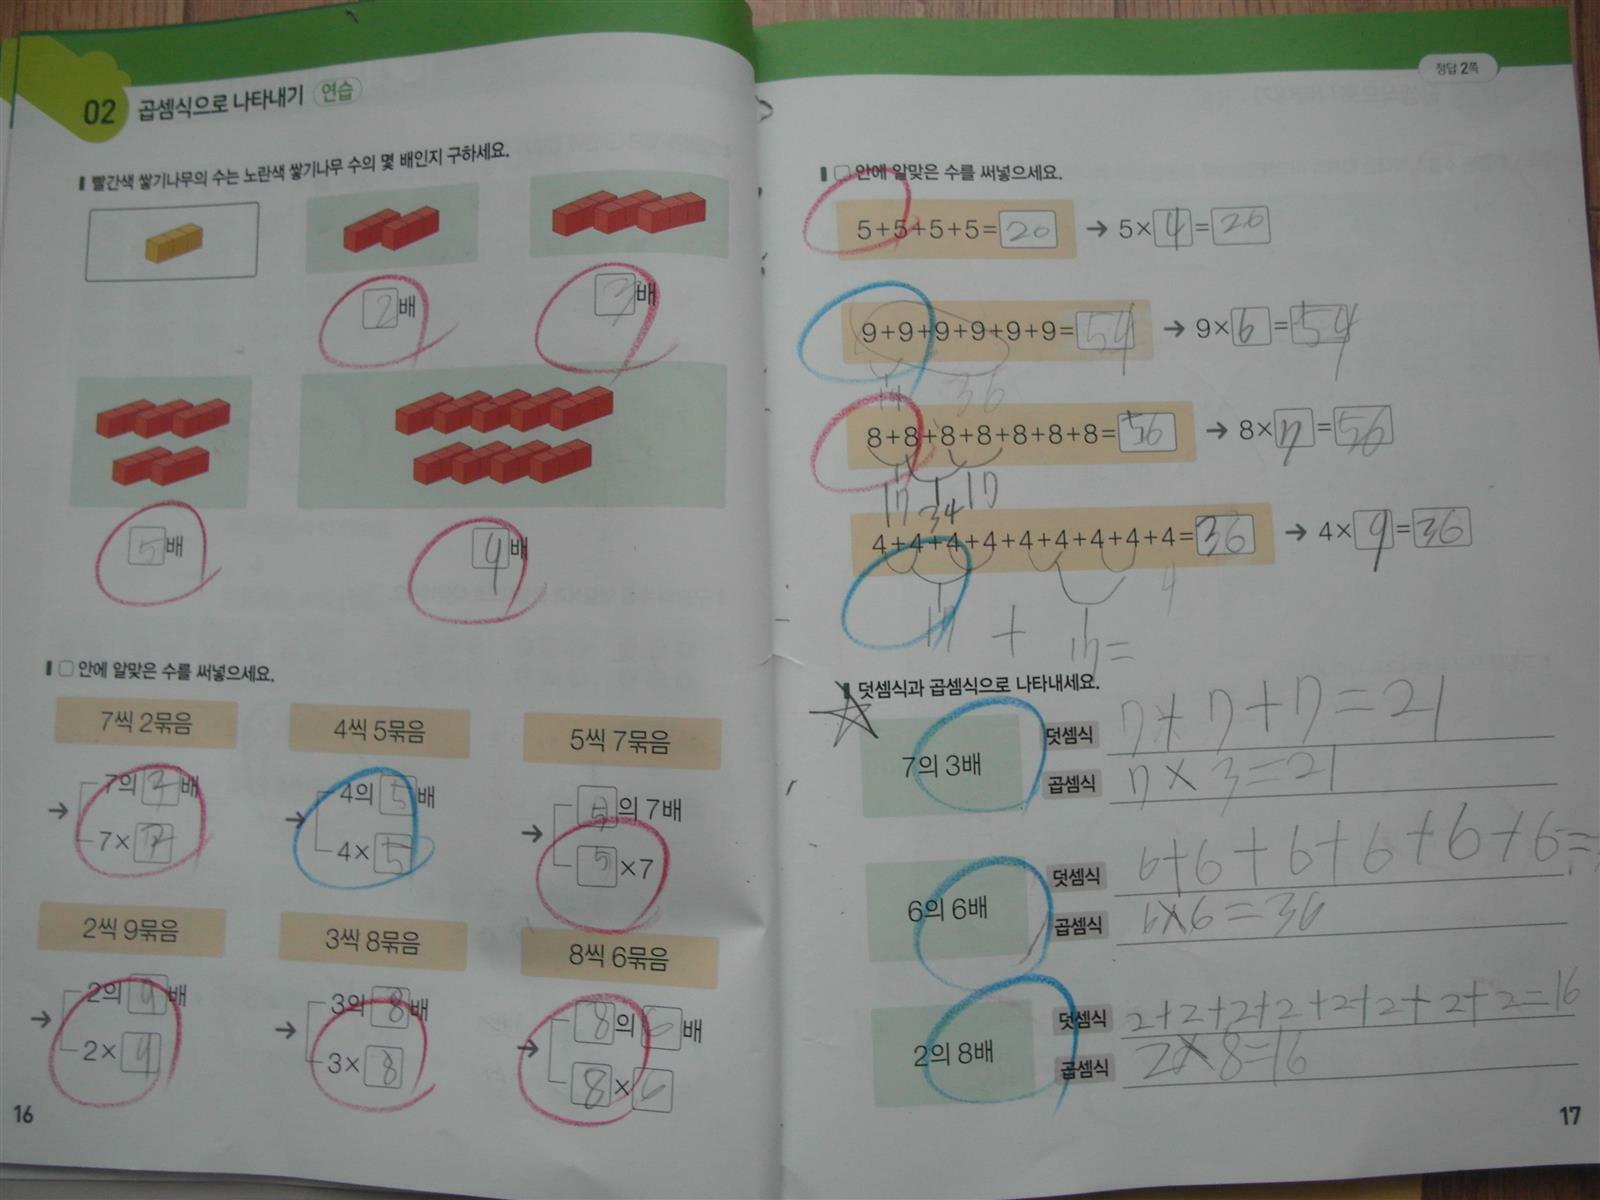 02 곱셈식으로 나타내기 연습
빨간색 쌓기나무의 수는 노란색 쌓기나무 수의 몇 배인지 구하세요.
2배
3배
5배
9배
□ 안에 알맞은 수를 써넣으세요.
7씩 2묶음
4씩 5묶음
5씩 7묶음
7의 배
7×
4의 5배
4×5
5의 7배
5×7
2씩 9묶음
3씩 8묶음
8씩 6묶음
2의 9배
2×9
3의 8배
3×8
8의 6배
8×6
16
정답 2쪽
□ 안에 알맞은 수를 써넣으세요.
5+5+5+5=20 → 5×4=20
9+9+9+9+9+9=54 → 9×6=54
36
8+8+8+8+8+8+8=56 → 8×7=56
34
4+4+4+4+4+4+4+4+4=36 → 4×9=36
4
+ =
덧셈식과 곱셈식으로 나타내세요.
7의 3배
덧셈식 7+7+7=21
곱셈식 7×3=21
6의 6배
덧셈식 6+6+6+6+6+6=
곱셈식 6×6=36
2의 8배
덧셈식 2+2+2+2+2+2+2+2=16
곱셈식 2×8=16
17